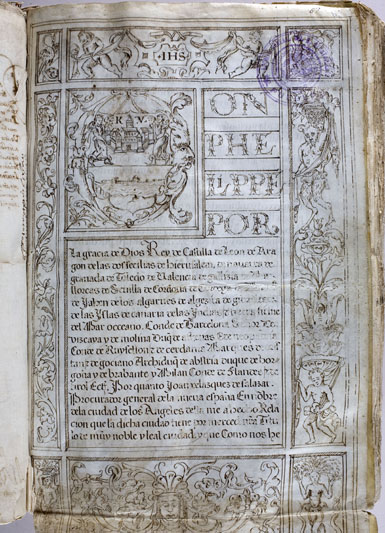 IHS
K V
ON
PHE
LIPPE
POR
La gracia de Dios Rey de Castilla de Leon de Ara
gon de las dos secilias de hierusalem de nauarra de
granada de Toledo de Valencia de galizia
llorcas de Seuilla de Cordoua
de Jahen de los algarues de algezira de
de las Yslas de canaria de las Yndias
del Mar occeano. Conde de Barcelona
vizcaya y de molina Duq de athenas
Conde de Ruysellon y de cerdania Marques de
tan y de gociano Archiduq de abstria duque de bor
goña y de brabante y Milan Conde de Flandes y de
tirol Ectª, Por quanto Joan velasques de salazar
Procurador general de la nueua españa En nobre
de la ciudad de los Angeles della me a hecho Rela
cion que la dicha ciudad tiene por merced nra Titu
lo de muy noble y leal ciudad, y que Como nos he